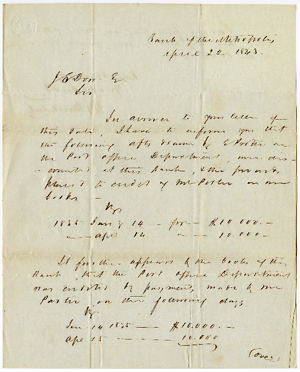 Bank of the Metropolis
April 22. 1843.
Sir
In answer to your letter of
this date, I have to inform you that
the following
the Post Office Department, were
at this Bank, & the
placed to credit of Mr Porter on our
books –
Viz
1835 Jany 14 – for – $10.000.–
" – Apl 14 " – 10.000–
It further appears by the books of the
Bank, that the Post Office Department
was credited by payment, made by Mr
Porter on the following days
Viz
Jan 14 1835 – – $10.000. –
Apl 15 – – – 10.000
(over)